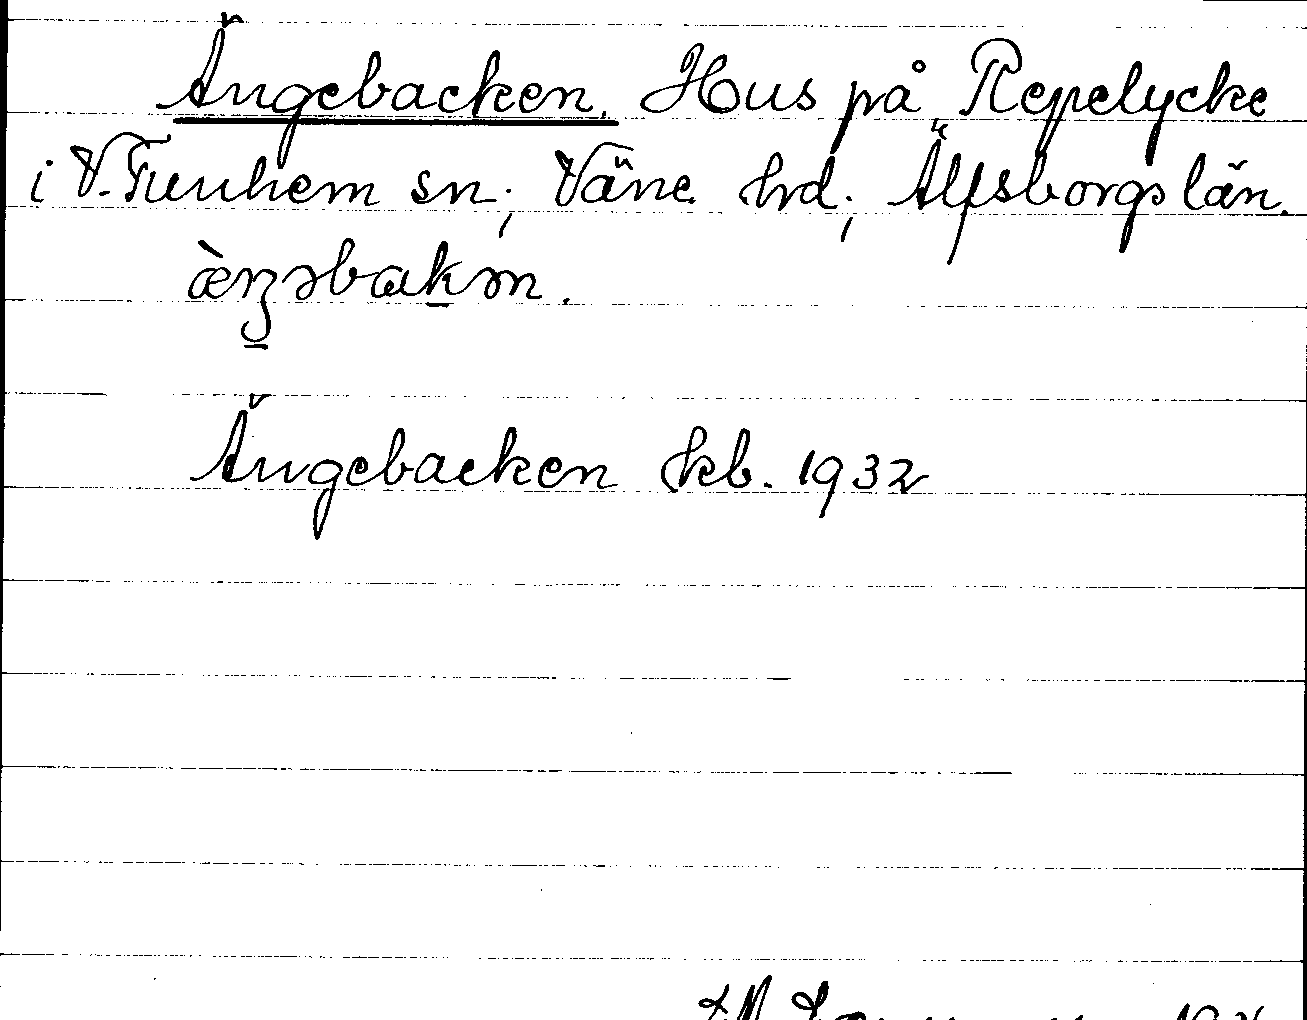 Ängebacken. Hus på Repelycke
i V. Tunhem sn; Väne hd; Älfsborgs län.
æ̀ŋəbakən.
Ängebacken kb. 1932